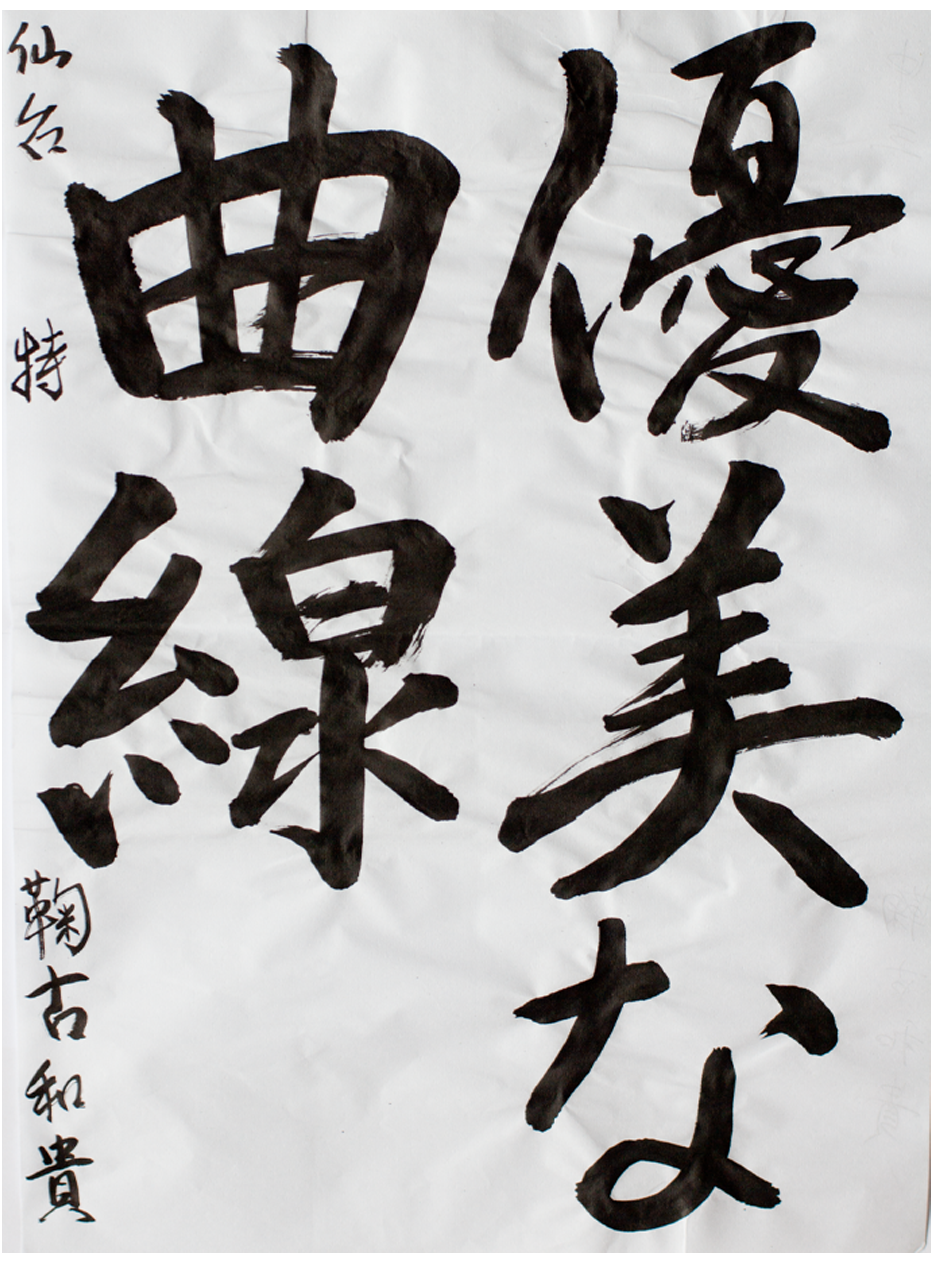 優美な
曲線
仙台 特 鞠古和貴